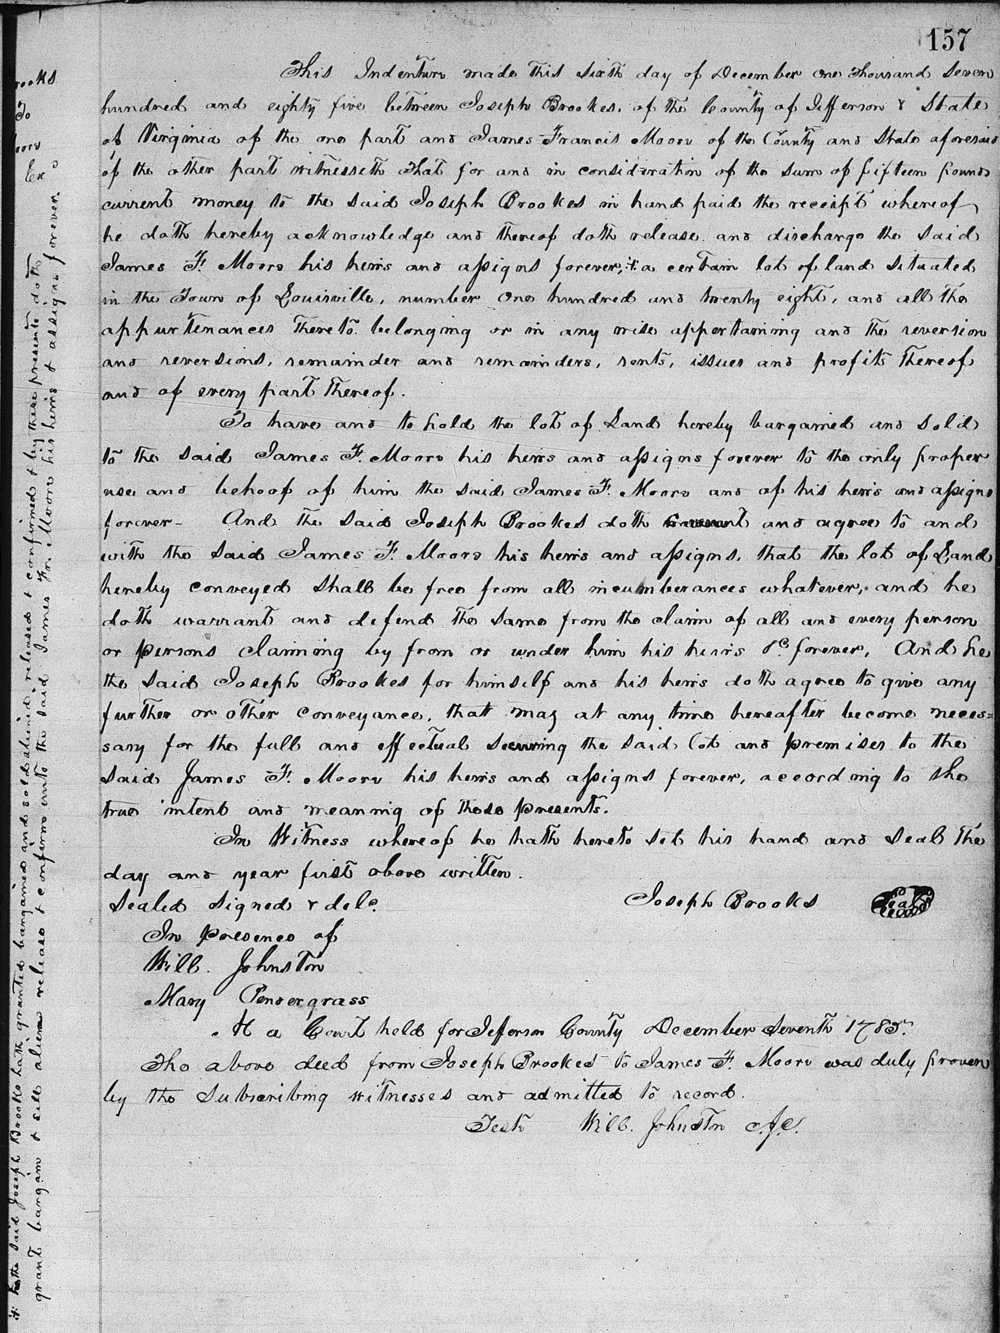 157
This Indenture made this sixth day of December one thousand seven
hundred and eighty five between Joseph Brookes, of the County of Jefferson & State
of Virginia of the one part and James Francis Moore of the County and State aforesaid
of the other part witnesseth That for and in consideration of the sum of fifteen pounds
current money to the said Joseph Brookes in hand paid the receipt whereof
he doth hereby acknowledge and thereof doth release and discharge the said
James F. Moore his heirs and assigns forever, a certain lot of land situated
in the Town of Louisville, number one hundred and twenty eight, and all the
appurtenances thereto belonging or in any wise appertaining and the reversion
and reversions, remainder and remainders, rents, issues and profits thereof
and of every part thereof.
To have and to hold the lot of Land hereby bargained and sold
to the said James F. Moore his heirs and assigns forever to the only proper
use and behoof of him the said James F. Moore and of his heirs and assigns
forever - And the said Joseph Brookes doth covenant and agree to and
with the said James F. Moore his heirs and assigns, that the lot of Land
hereby conveyed shall be free from all incumberances whatever, and he
doth warrant and defend the same from the claim of all and every person
or persons claiming by from or under him his heirs &c. forever, And he
the said Joseph Brookes for himself and his heirs doth agree to give any
further or other conveyance, that may at any time hereafter become neces=
sary for the full and effectual securing the said lot and premises to the
said James F. Moore his heirs and assigns forever, according to the
true intent and meaning of these presents.
In Witness whereof he hath hereto set his hand and seal the
day and year first above written.
Sealed Signed & deld. Joseph Brooks Seal
In presence of
Will. Johnston
Mary Pendergrass
At a Court held for Jefferson County December Seventh 1785.
The above deed from Joseph Brookes to James F. Moore was duly proven
by the Subscribing witnesses and admitted to record.
Test Will. Johnston C.J.C.
rooks
To
oore
Ex
the said Joseph Brooks hath granted bargained and sold aliened released & confirmed & by these presents doth
grant bargain & sell aliene release & confirm unto the said James Fr. Moore his heirs & assigns forever